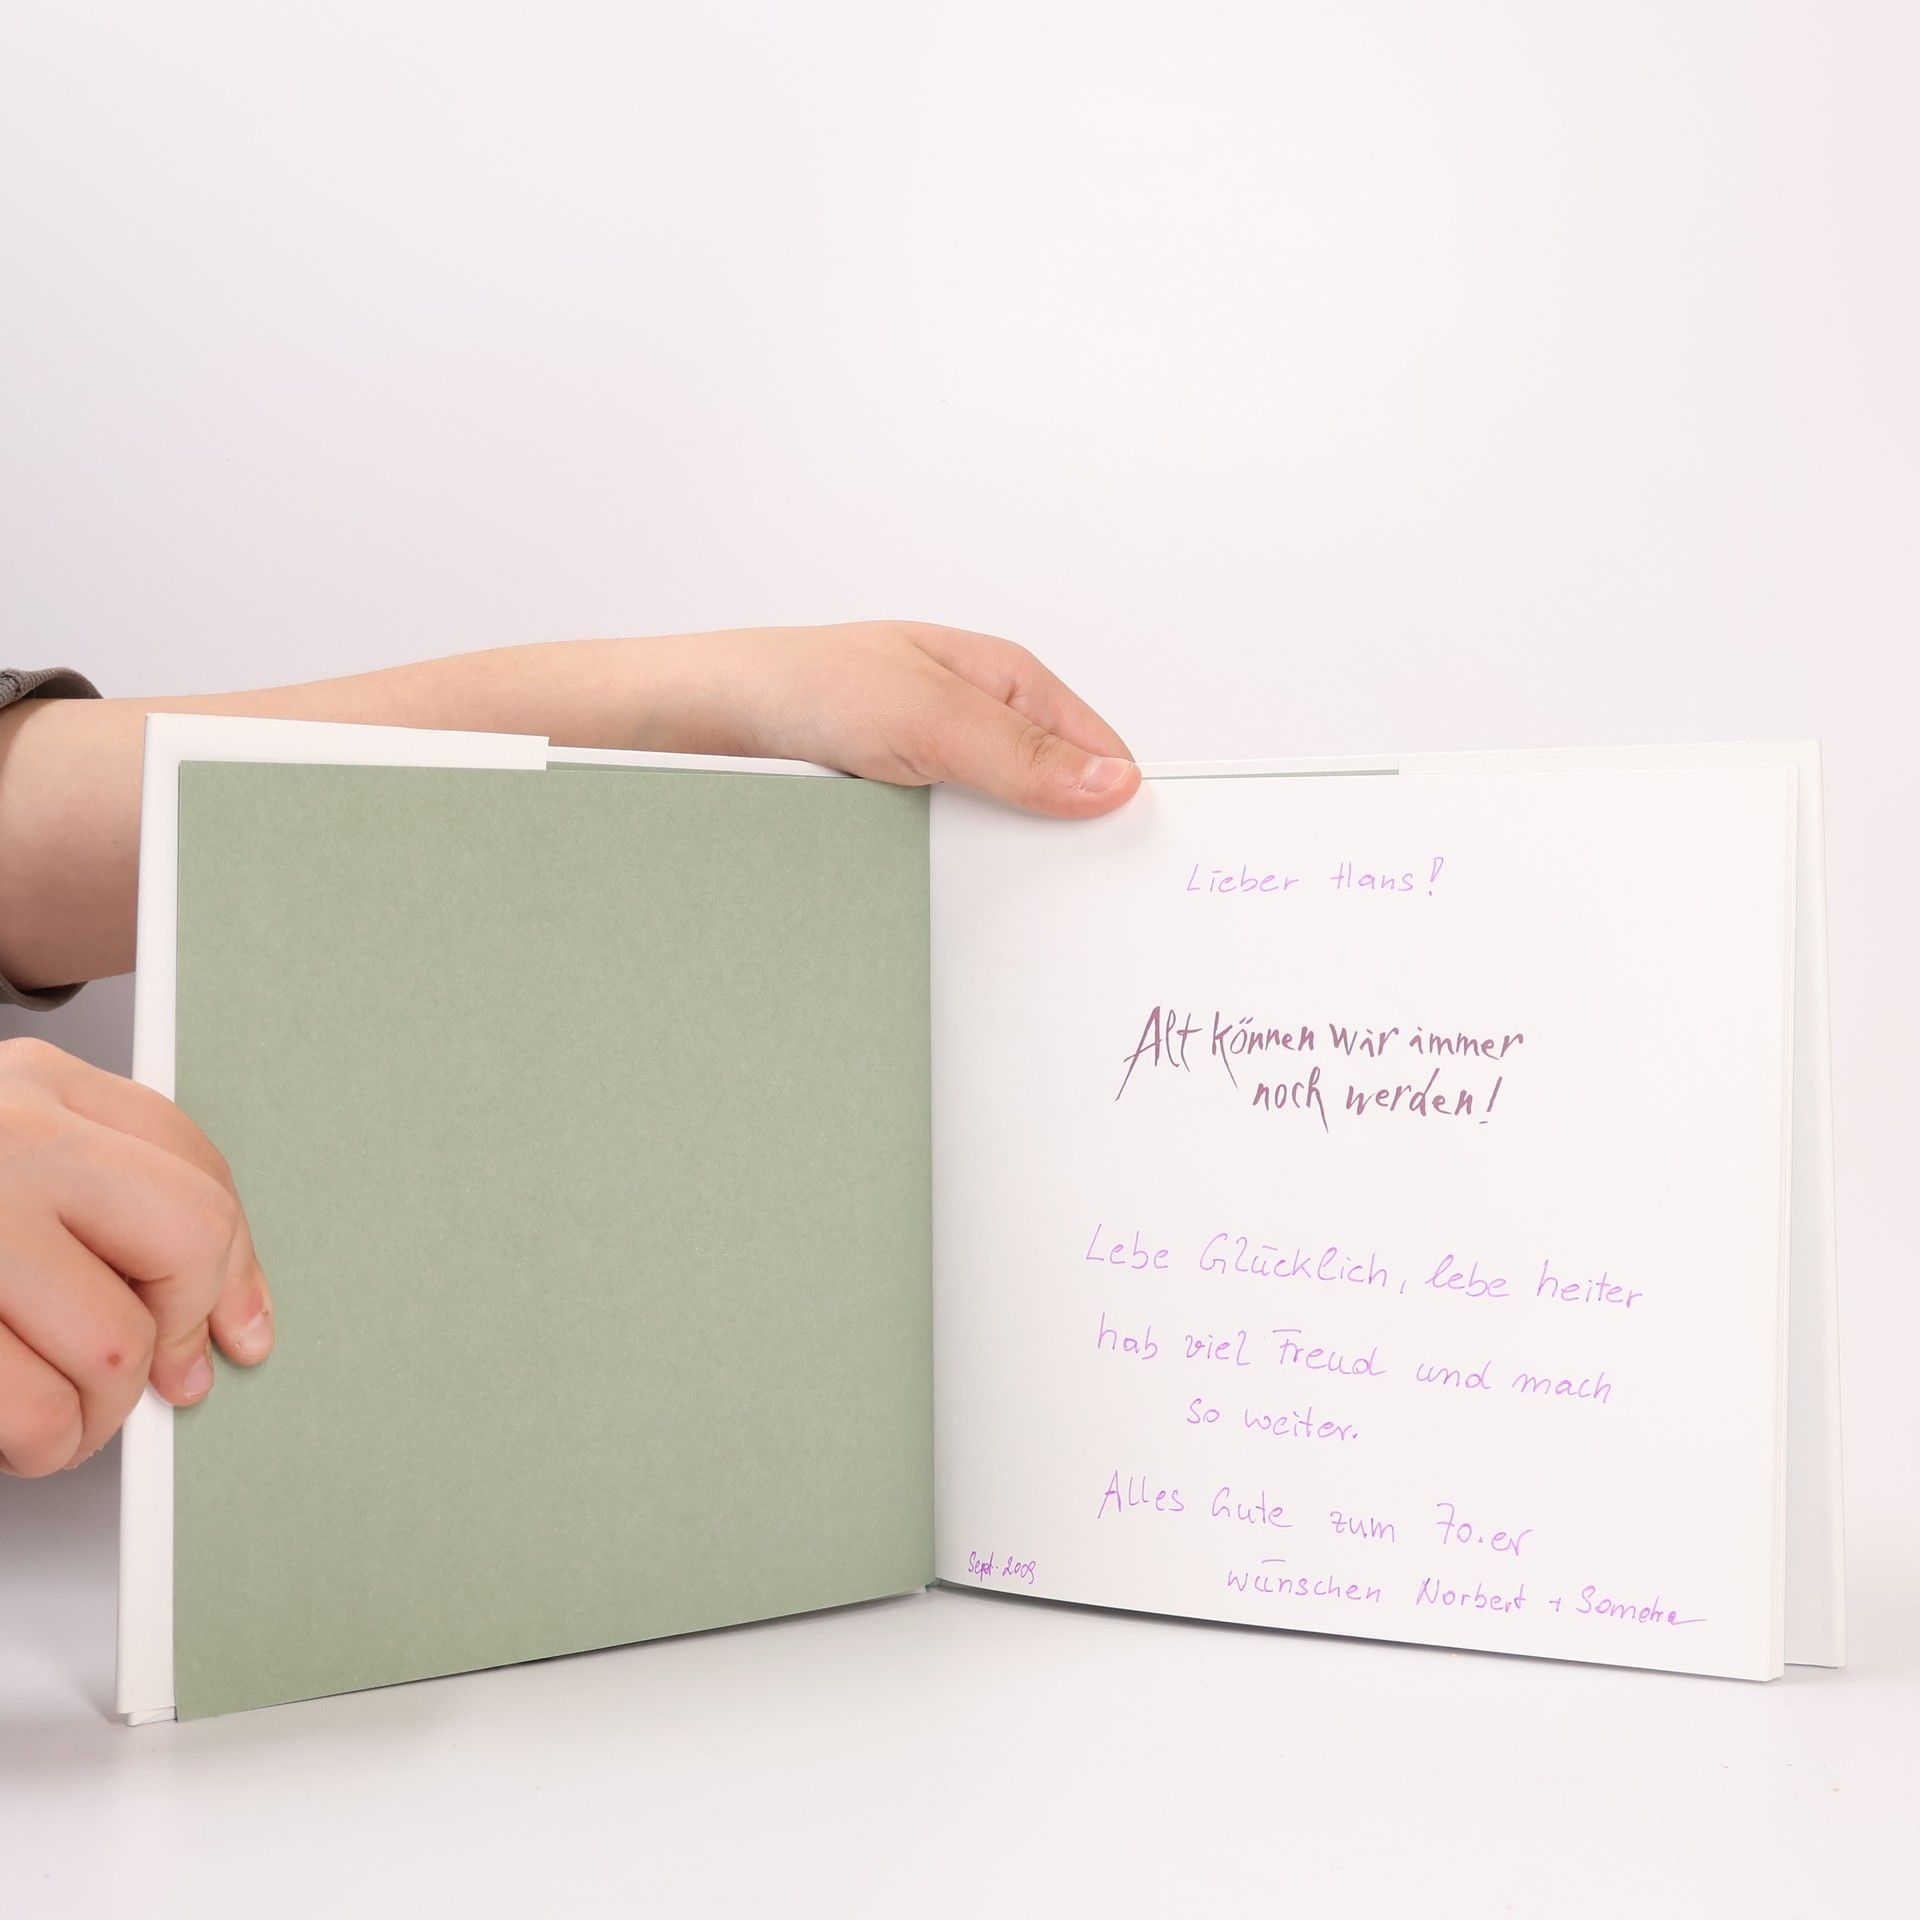 Lieber Hans!
Alt können wir immer
noch werden!
Lebe Glücklich, lebe heiter
hab viel Freud und mach
so weiter.
Alles Gute zum 70.er
wünschen Norbert +
Sept. 2009